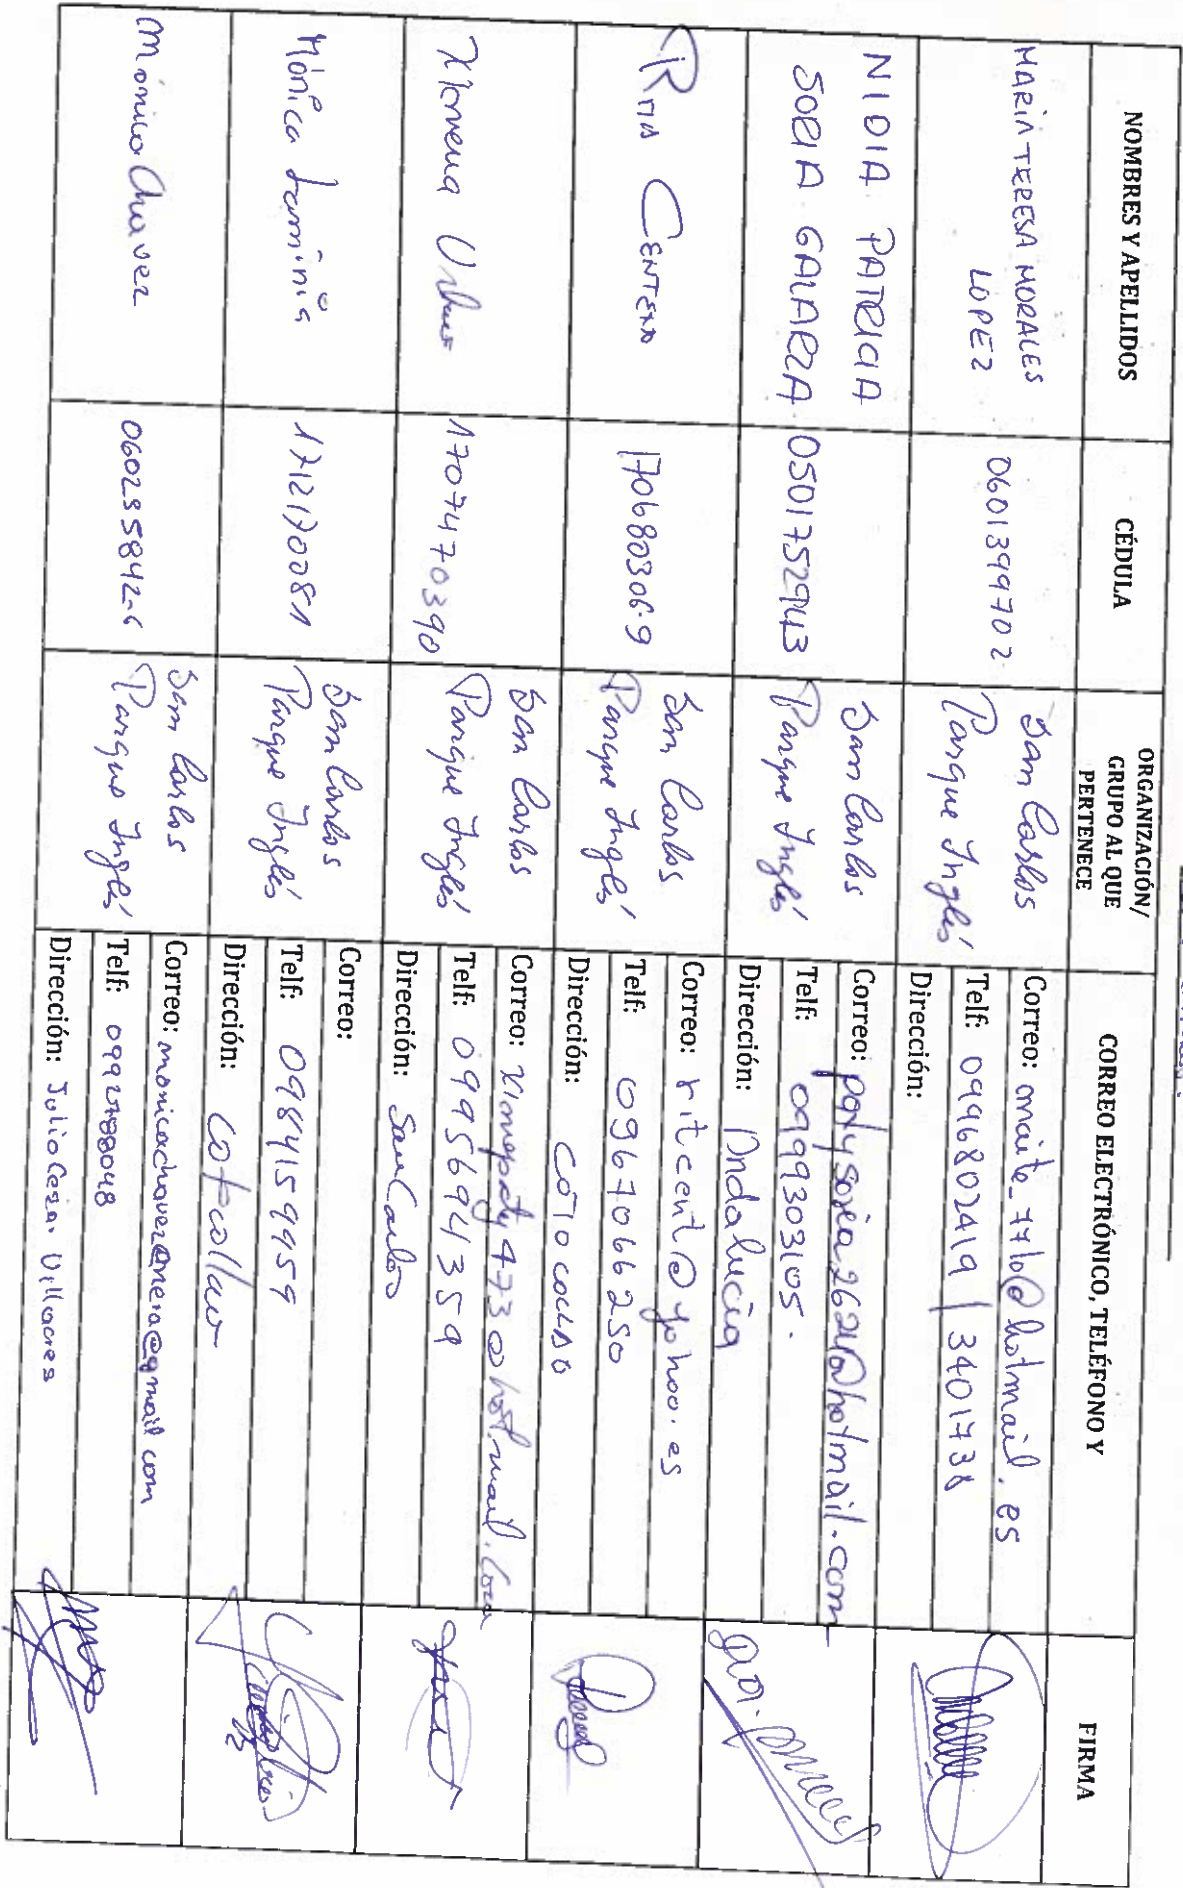 NOMBRES Y APELLIDOS
CÉDULA
ORGANIZACIÓN/
GRUPO AL QUE
PERTENECE
CORREO ELECTRÓNICO, TELÉFONO Y
FIRMA
MARIA TERESA MORALES
LOPEZ
0601399702
San Carlos
Parque Inglés
Correo: maite_7710@hotmail.es
Telf: 0996802419 / 3401738
Dirección:
NIDIA PATRICIA
SORIA GALARZA
0501752943
San Carlos
Parque Inglés
Correo: patysoria2621@hotmail.com
Telf: 0999303105.
Dirección: Andalucía
RITA CENTENO
170680306-9
San Carlos
Parque Inglés
Correo: ritcent@yahoo.es
Telf: 0967066250
Dirección: COTOCOLLAO
Ximena
1707470390
San Carlos
Parque Inglés
Correo: ximepaty473@hotmail.com
Telf: 0995694359
Dirección: San Carlos
Mónica
1712170081
San Carlos
Parque Inglés
Correo:
Telf: 0984159959
Dirección: Cotocollao
Mónica Chavez
060235842-6
San Carlos
Parque Inglés
Correo: monicachavezmera@gmail com
Telf: 0992788048
Dirección: Julio Cesar Villacres